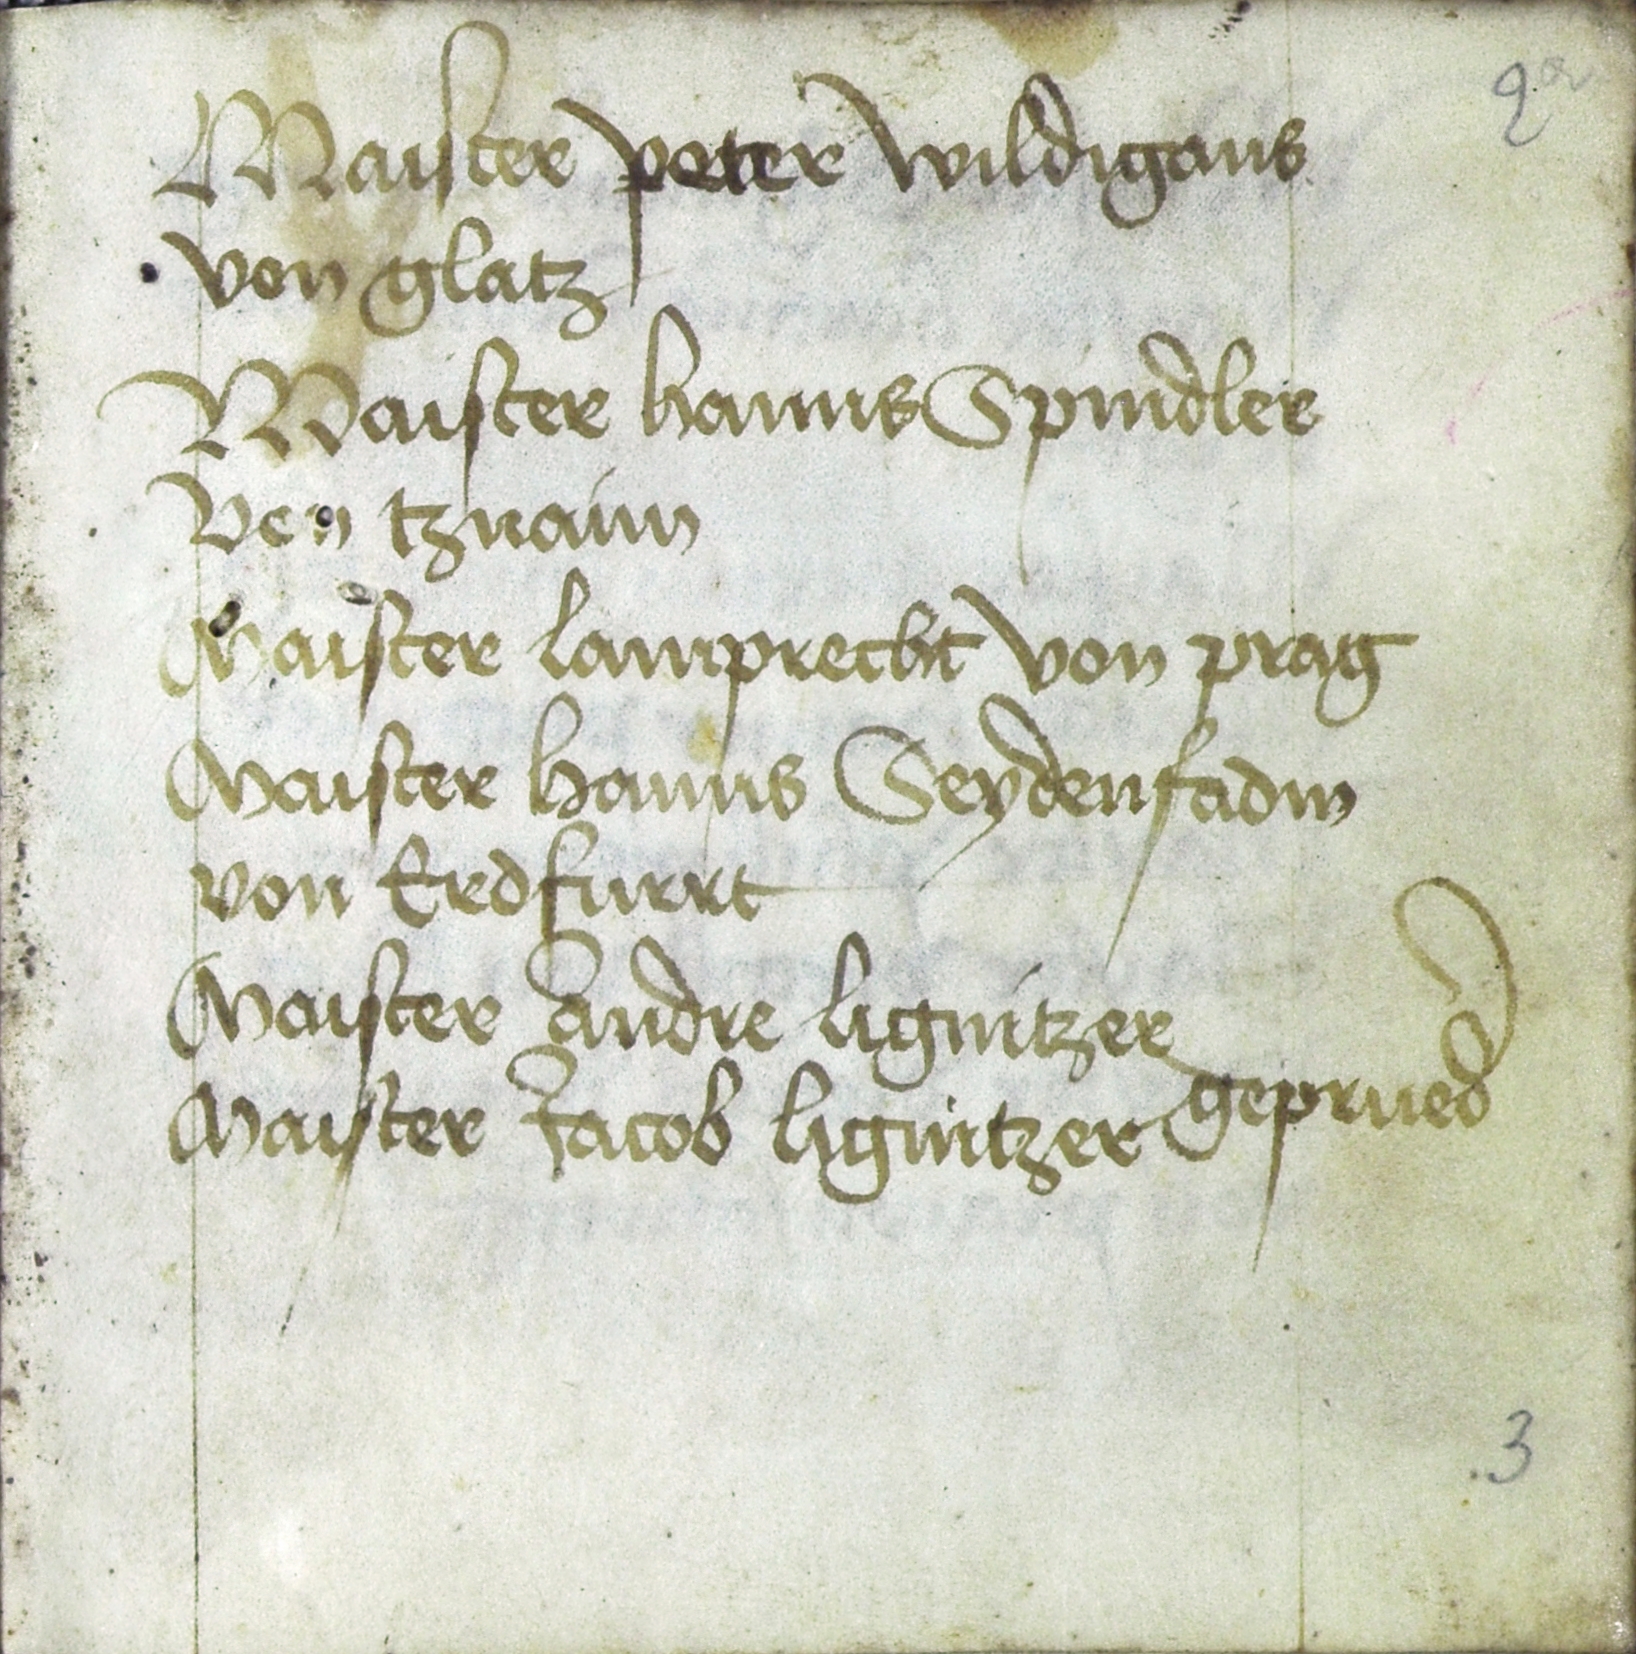 Maister peter wildigans
von glatz
Maister hanns Spindler
Von tznaim
Maister lamprecht von prag
Maister hanns Seydenfadm
von Erdfurrt
Maister andre lignitzer
Maister Jacob lignitzer geprued
3